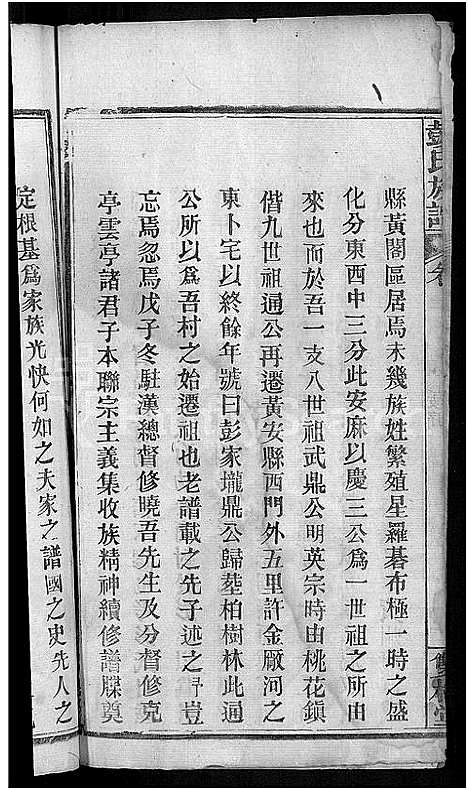 彭氏族譜
縣黃閣區居焉未幾族姓繁殖星羅碁布極一時之盛
化分東西中三分此安麻以慶三公爲一世祖之所由
來也而於吾一支八世祖武鼎公明英宗時由桃花鎮
偕九世祖通公再遷黃安縣西門外五里許金廠河之
東卜宅以終餘年號曰彭家攏鼎公歸塟柏樹林此通
公所以爲吾村之始遷祖也老譜載之先子述之予豈
忘焉忽焉戊子冬駐漢總督修曉吾先生及分督修克
亭雲亭諸君子本聯宗主義集收族精神續修譜牒奠
定根基爲家族光快何如之夫家之譜國之史先人之